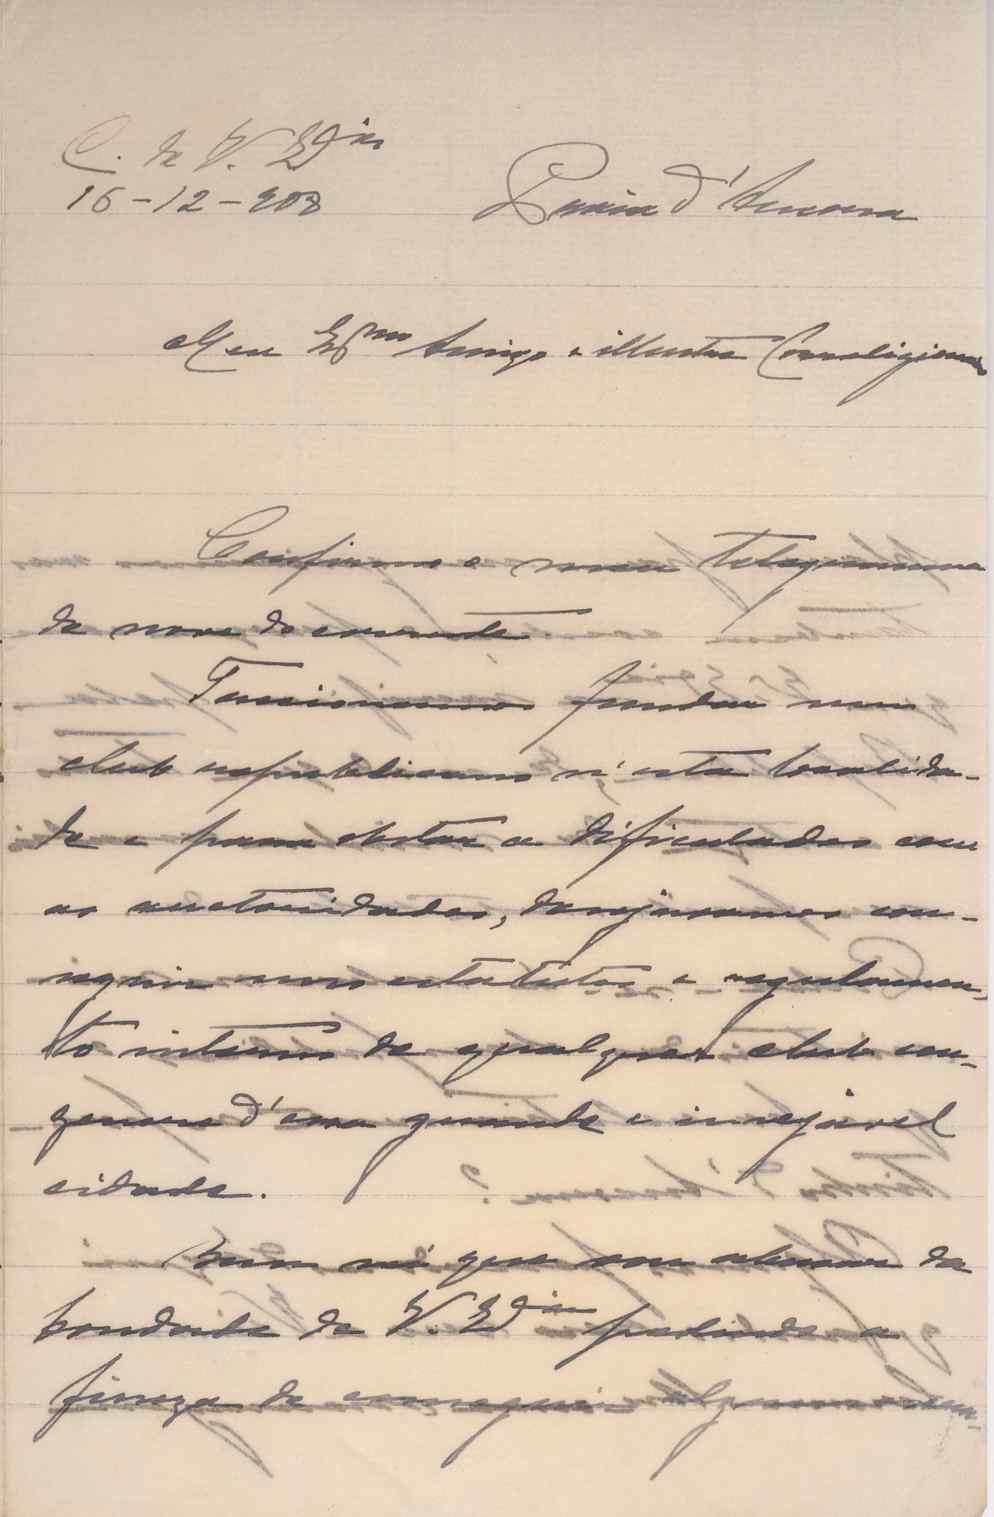 C. de V. Exia
16-12-908
Praia d'Ancora
Meu Exmo Amigo e illustre Correligionario
Confirmo o meu telegramma
de nove do corrente.
Tencionamos fundar um
club republicano n'esta localida-
de e para obstar a dificuldades com
as auctoridades, desejavamos con-
seguir uns estatutos e regulamen-
to interno de qualquer club con-
genere d'essa grande e invejavel
cidade.
Bem sei que vou abusar da
bondade de V. Exia pedindo a
fineza de conseguir